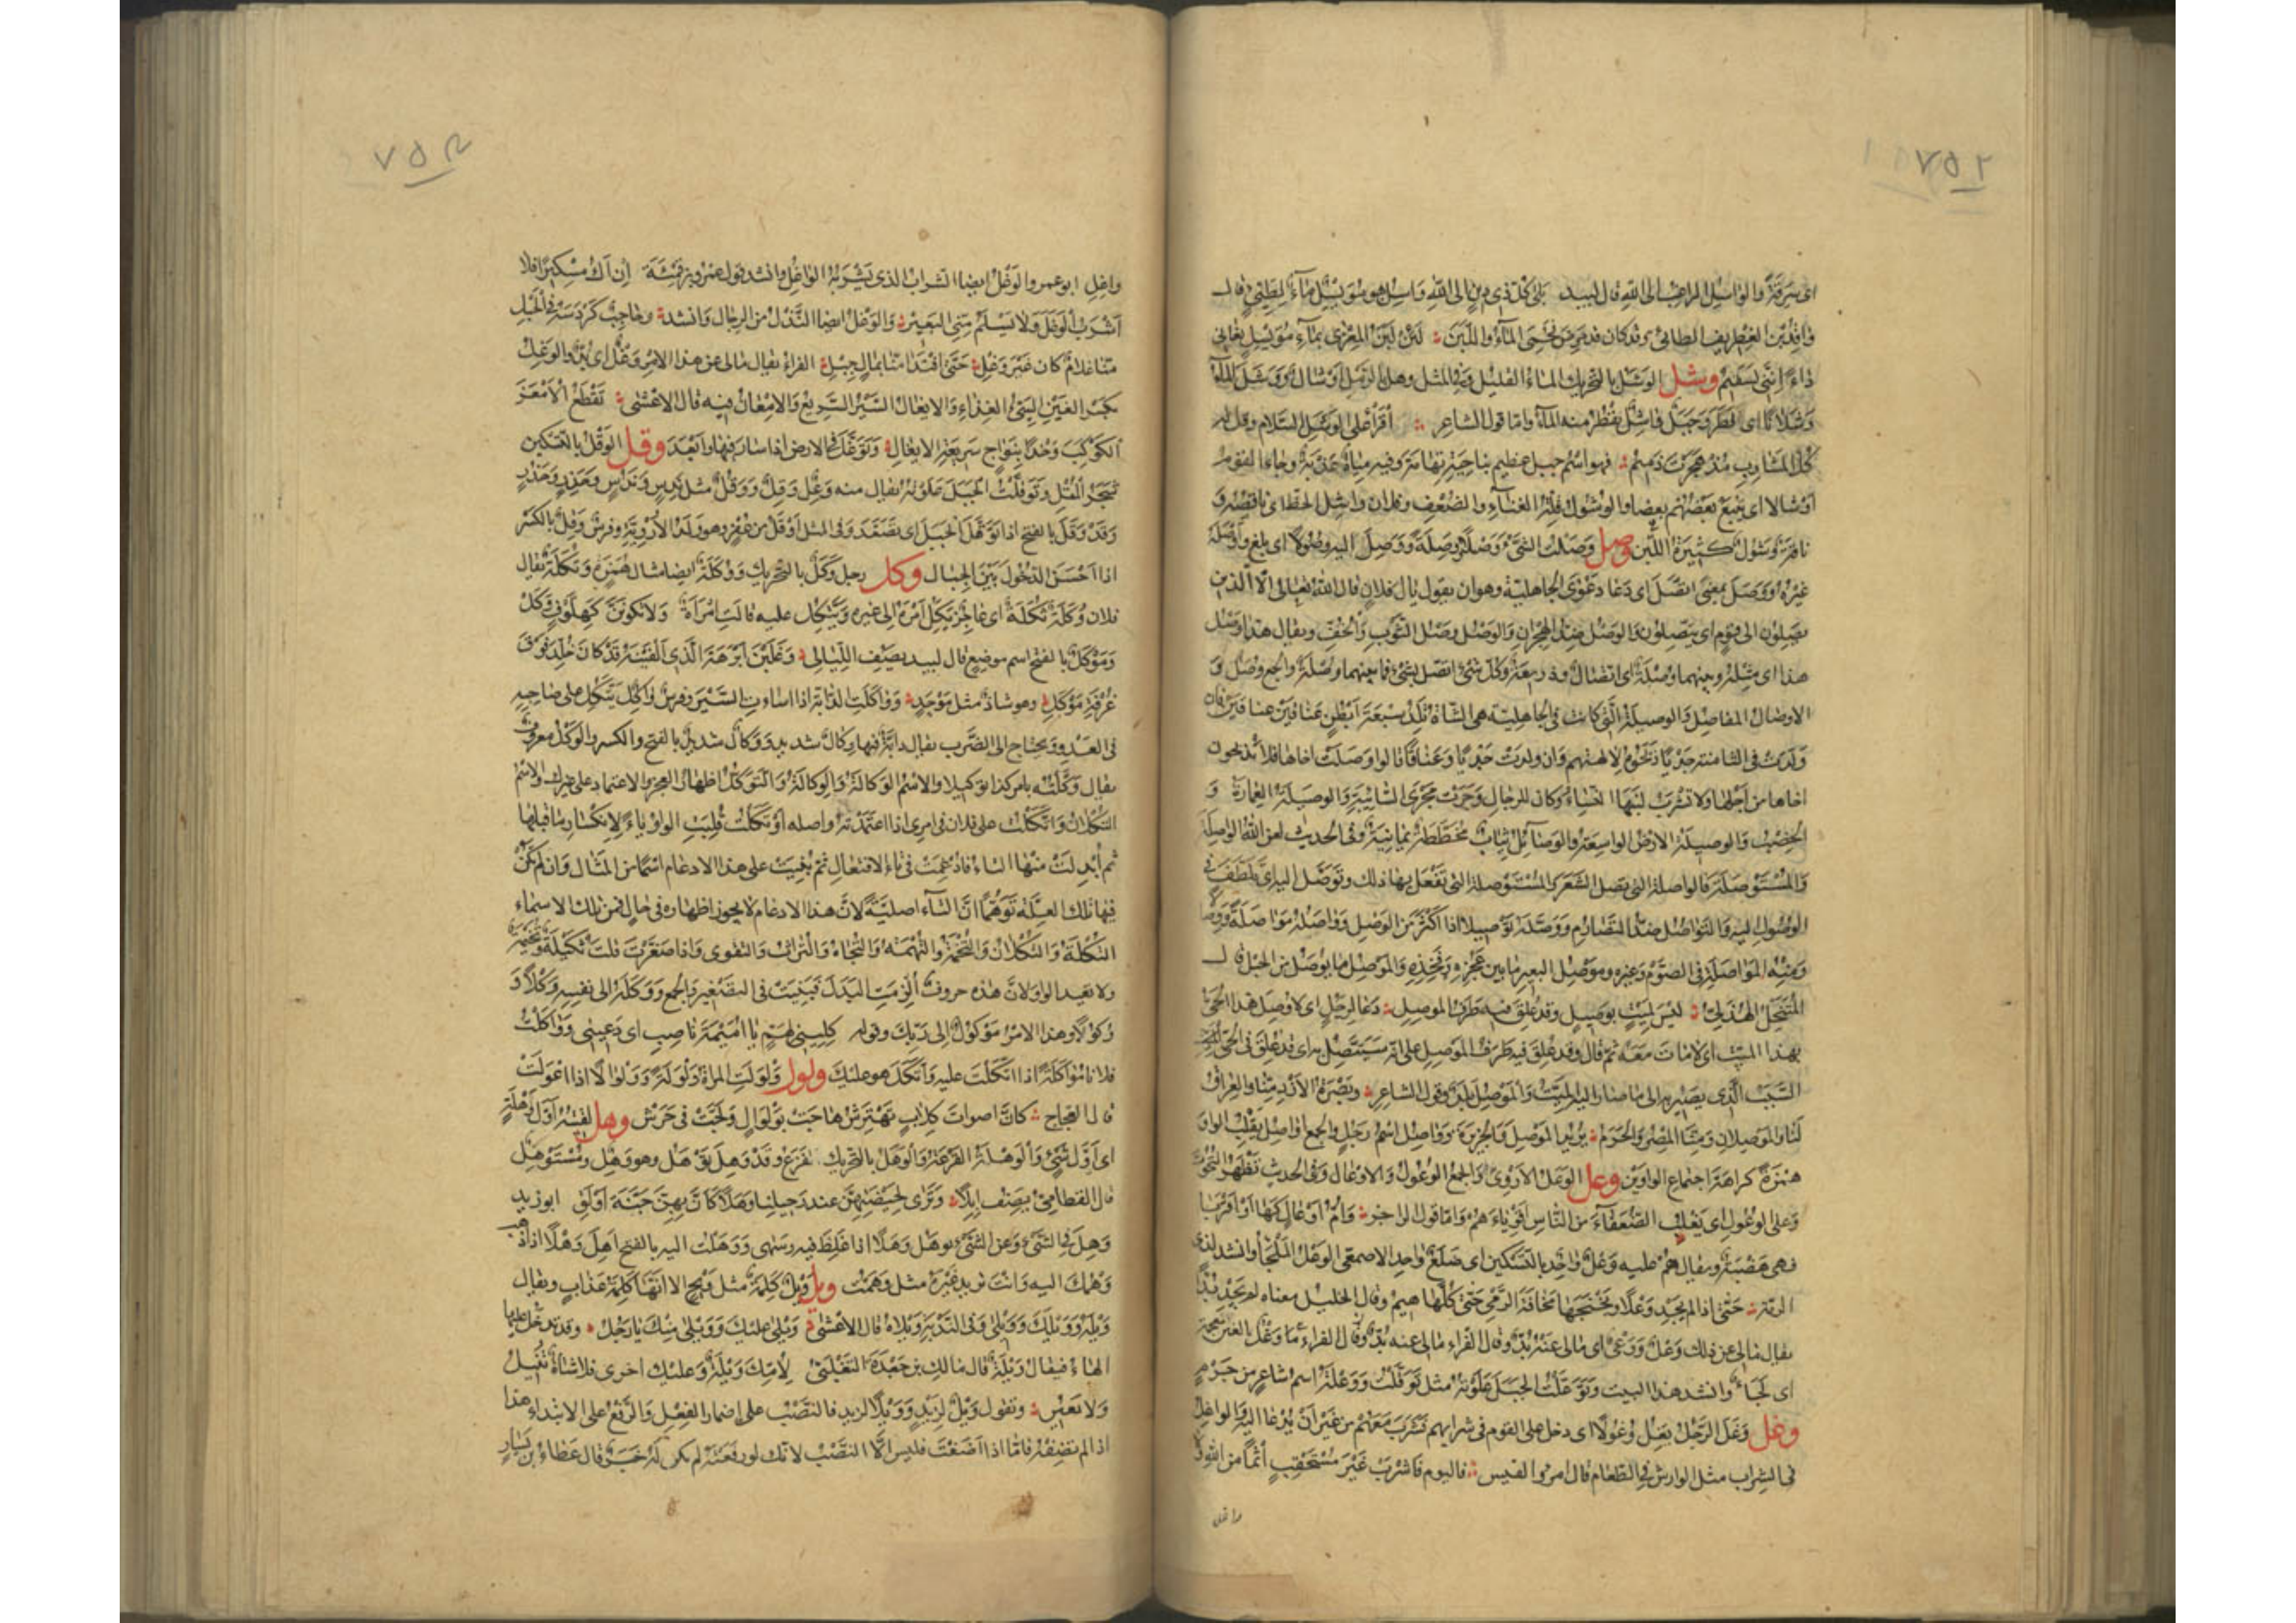 ٧٥٢
اى سرقة والواسل الراغب الى الله قال لبيد بلى كل ذى دين الى الله واسل هو مويسل ماء لطيئ قال
واقد بن الغطريف الطائى وقد كان قد مرض فحمى الماء واللبن لئن لبن المعزى بماء مويسل بغانى
داء اننى لسقيم وشل الوشل بالتحريك الماء القليل وفى المثل وهل بالرمل اوشال ووشل الماء
وشلانا اى قطر وجبل واشل يقطر منه الماء واما قول الشاعر اقرأ على الوشل السلام وقل له
كل المشارب مذ هجرت ذميم فهو اسم جبل عظيم بناحية تهامة وفيه مياه عذبة وجاء القوم
اوشالا اى يتبع بعضهم بعضا والوشول قلة الغناء والضعف وفلان واشل الحظ اى ناقصه و
ناقة وشول كثيرة اللبن وصل وصلت الشئ وصلا وصلة ووصل اليه وصولا اى بلغ واوصله
غيره ووصل بمعنى اتصل اى دعا دعوى الجاهلية وهو ان يقول يال فلان قال الله تعالى الا الذين
يصلون الى قوم اى يتصلون والوصل ضد الهجران والوصل وصل الثوب والخف ويقال هذا وصل
هذا اى مثله وبينهما وصلة اى اتصال وذريعة وكل شئ اتصل بشئ فما بينهما وصلة والجمع وصل و
الاوصال المفاصل والوصيلة التى كانت فى الجاهلية هى الشاة تلد سبعة ابطن عناقين عناقين فان
ولدت فى الثامنة جديا ذبحوه لالهتهم وان ولدت جديا وعناقا قالوا وصلت اخاها فلا يذبحون
اخاها من اجلها ولا تشرب لبنها النساء وكان للرجال وجرت مجرى السائبة والوصيلة العمارة و
الخصب والوصيلة الارض الواسعة والوصائل ثياب مخططة يمانية وفى الحديث لعن الله الواصلة
والمستوصلة فالواصلة التى تصل الشعر والمستوصلة التى تفعل بها ذلك وتوصل اليه اى تلطف فى
الوصول اليه والتواصل ضد التصارم ووصله توصيلا اذا اكثر من الوصل وواصله مواصلة ووصالا
ومنه المواصلة فى الصوم وغيره وموصل البعير ما بين عجزه وفخذه والموصل ما يوصل من الحبل قال
المتنخل الهذلى ليس لميت بوصيل وقد علق فيه طرف الموصل دعا لرجل اى لا وصل هذا الحى
بهذا الميت اى لا مات معه ثم قال وقد علق فيه طرف الموصل على انه سيتصل به اى قد علق فى الحى
السبب الذى يصيره الى ما صار اليه الميت والموصل بلد وقول الشاعر وبصرة الازد منا والعراق
لنا والموصلان ومنا المصر والحرم يريد الموصل والجزيرة وواصل اسم رجل والجمع اواصل بقلب الواو
همزة كراهة اجتماع الواوين وعل الوعل الاروى والجمع الوعول والاوعال وفى الحديث تظهر التحوت
وعلى الوعول اى يغلب الضعفاء من الناس اقوياءهم واما قول الراجز وام اوعال كها او اقربا
فهى هضبة ويقال هم عليه وعل واحد بالتسكين اى ضلع واحد الاصمعى الوعل الملجأ وانشد لذى
الرمة حتى اذا لم يجد وعلا ونجنجها مخافة الرمى حتى كلها هيم وقال الخليل معناه لم يجد بدا
يقال مالى عن ذلك وعل ووعى اى مالى عنه بد وقال الفراء مالى عنه بد وقال الفراء ما وغل بالغين معجمة
اى لجاء وانشد هذا البيت وتوعلت الجبل علوته مثل توقلت ووعلة اسم شاعر من جرم
وغل وغل الرجل يغل وغولا اى دخل على القوم فى شرابهم فشرب معهم من غير ان يدعا اليه والواغل
فى الشراب مثل الوارش فى الطعام قال امرؤ القيس فاليوم فاشرب غير مستحقب اثما من الله ولا
واغل
٧٥٣
واغل ابو عمرو الوغل ايضا الشراب الذى يشربه الواغل وانشد قول عمرو بن قميئة ان اك مسكيرا فلا
اشرب الوغل ولا يسلم منى البعير والوغل ايضا النذل من الرجال وانشد وحاجب كردسه فى الحبل
منا غلام كان غير وغل حتى افتدا منا بمال جبل الفراء يقال مالى عن هذا الامر وغل اى بد والوغل
بكسر الغين السيئ الغذاء والايغال السير السريع والامعان فيه قال الاعشى تقطع الامعز
المكوكب وخدا بنواج سريعة الايغال وتوغل فى الارض اذا سار فيها وابعد وقل الوقل بالتسكين
شجر المقل وتوقلت الجبل علوته يقال منه وعل وقل ووقل مثل ندس وندس وحذر وحذر
وقد وقل بالفتح اذا توقل الجبل اى تصعد وفى المثل اوقل من غفر وهو ولد الاروية وفرس وقل بالكسر
اذا احسن الدخول بين الجبال وكل رجل وكل بالتحريك ووكلة ايضا مثال همزة وتكلة يقال
فلان وكلة تكلة اى عاجز يكل امره الى غيره ويتكل عليه قالت امرأة ولا تكونن كهلوف وكل
وموكل بالفتح اسم موضع قال لبيد يصف الليالى وغلبن ابرهة الذى الفينه قد كان خلد فوق
غرفة موكل وهو شاذ مثل موحد وواكلت الدابة اذا اساءت السير وفرس واكل يتكل على صاحبه
فى العدو ويحتاج الى الضرب يقال دابة فيها وكال شديد ووكال شديد بالفتح والكسر والوكل معروف
يقال وكلته بامر كذا توكيلا والاسم الوكالة والوكالة والتوكل اظهار العجز والاعتماد على غيرك والاسم
التكلان واتكلت على فلان فى امرى اذا اعتمدته واصله اوتكلت قلبت الواو ياء لانكسار ما قبلها
ثم ابدلت منها التاء فادغمت فى تاء الافتعال ثم بنيت على هذا الادغام اسما من المثال وان لم تكن
فيها تلك العلة توهما ان التاء اصلية لان هذا الادغام لا يجوز اظهاره فى حال فمن تلك الاسماء
التكلة والتكلان والتخمة والتهمة والتجاه والتراث والتقوى واذا صغرت قلت تكيلة وتخيمة
ولا تعيد الواو لان هذه حروف الزمت البدل فبنيت فى التصغير والجمع ووكله الى نفسه وكلا و
وكولا وهذا الامر موكول الى ربك وقوله كلينى لهم يا اميمة ناصب اى دعينى وواكلت
فلانا مواكلة اذا اتكلت عليه واتكل هو عليك ولول ولولت المرأة ولولة وولوالا اذا اعولت
قال العجاج كان اصوات كلاب تهترش هاجت بولوال ولجت فى حرش وهل لقيته اول وهلة
اى اول شئ والوهلة الفزعة والوهل بالتحريك الفزع وقد وهل يوهل وهو وهل ومستوهل
قال القطامى يصف ابلا وترى لجيضتهن عند رحيلنا وهلا كان بهن جنة اولق ابو زيد
وهل فى الشئ وعن الشئ يوهل وهلا اذا غلط فيه وسهى ووهلت اليه بالفتح اهل وهلا اذا ذهب
وهمك اليه وانت تريد غيره مثل وهمت ويل ويل كلمة مثل ويح الا انها كلمة عذاب ويقال
ويله وويلك وويلى وفى الندبة ويلاه قال الاعشى ويلى عليك وويلى منك يا رجل وقد تدخل عليها
الهاء فيقال ويلة قال مالك بن جعدة التغلبى لامك ويلة وعليك اخرى فلا شاة تنيل
ولا بعير وتقول ويل لزيد وويلا لزيد فالنصب على اضمار الفعل والرفع على الابتداء هذا
اذا لم تضفه فاما اذا اضفت فليس الا النصب لانك لو رفعته لم يكن له خبر قال عطاء بن يسار